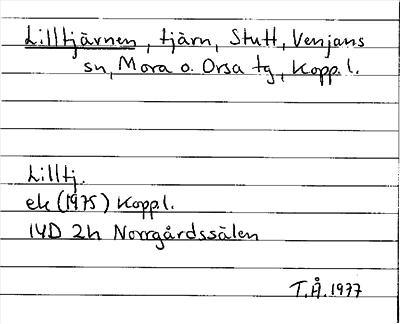 Lilltjärnen, tjärn, Stutt, Venjans
sn, Mora o. Orsa tg, Kopp. l.
Lilltj.
ek (1975) Kopp l.
14D 2h Norrgårdssälen
T.Å. 1977